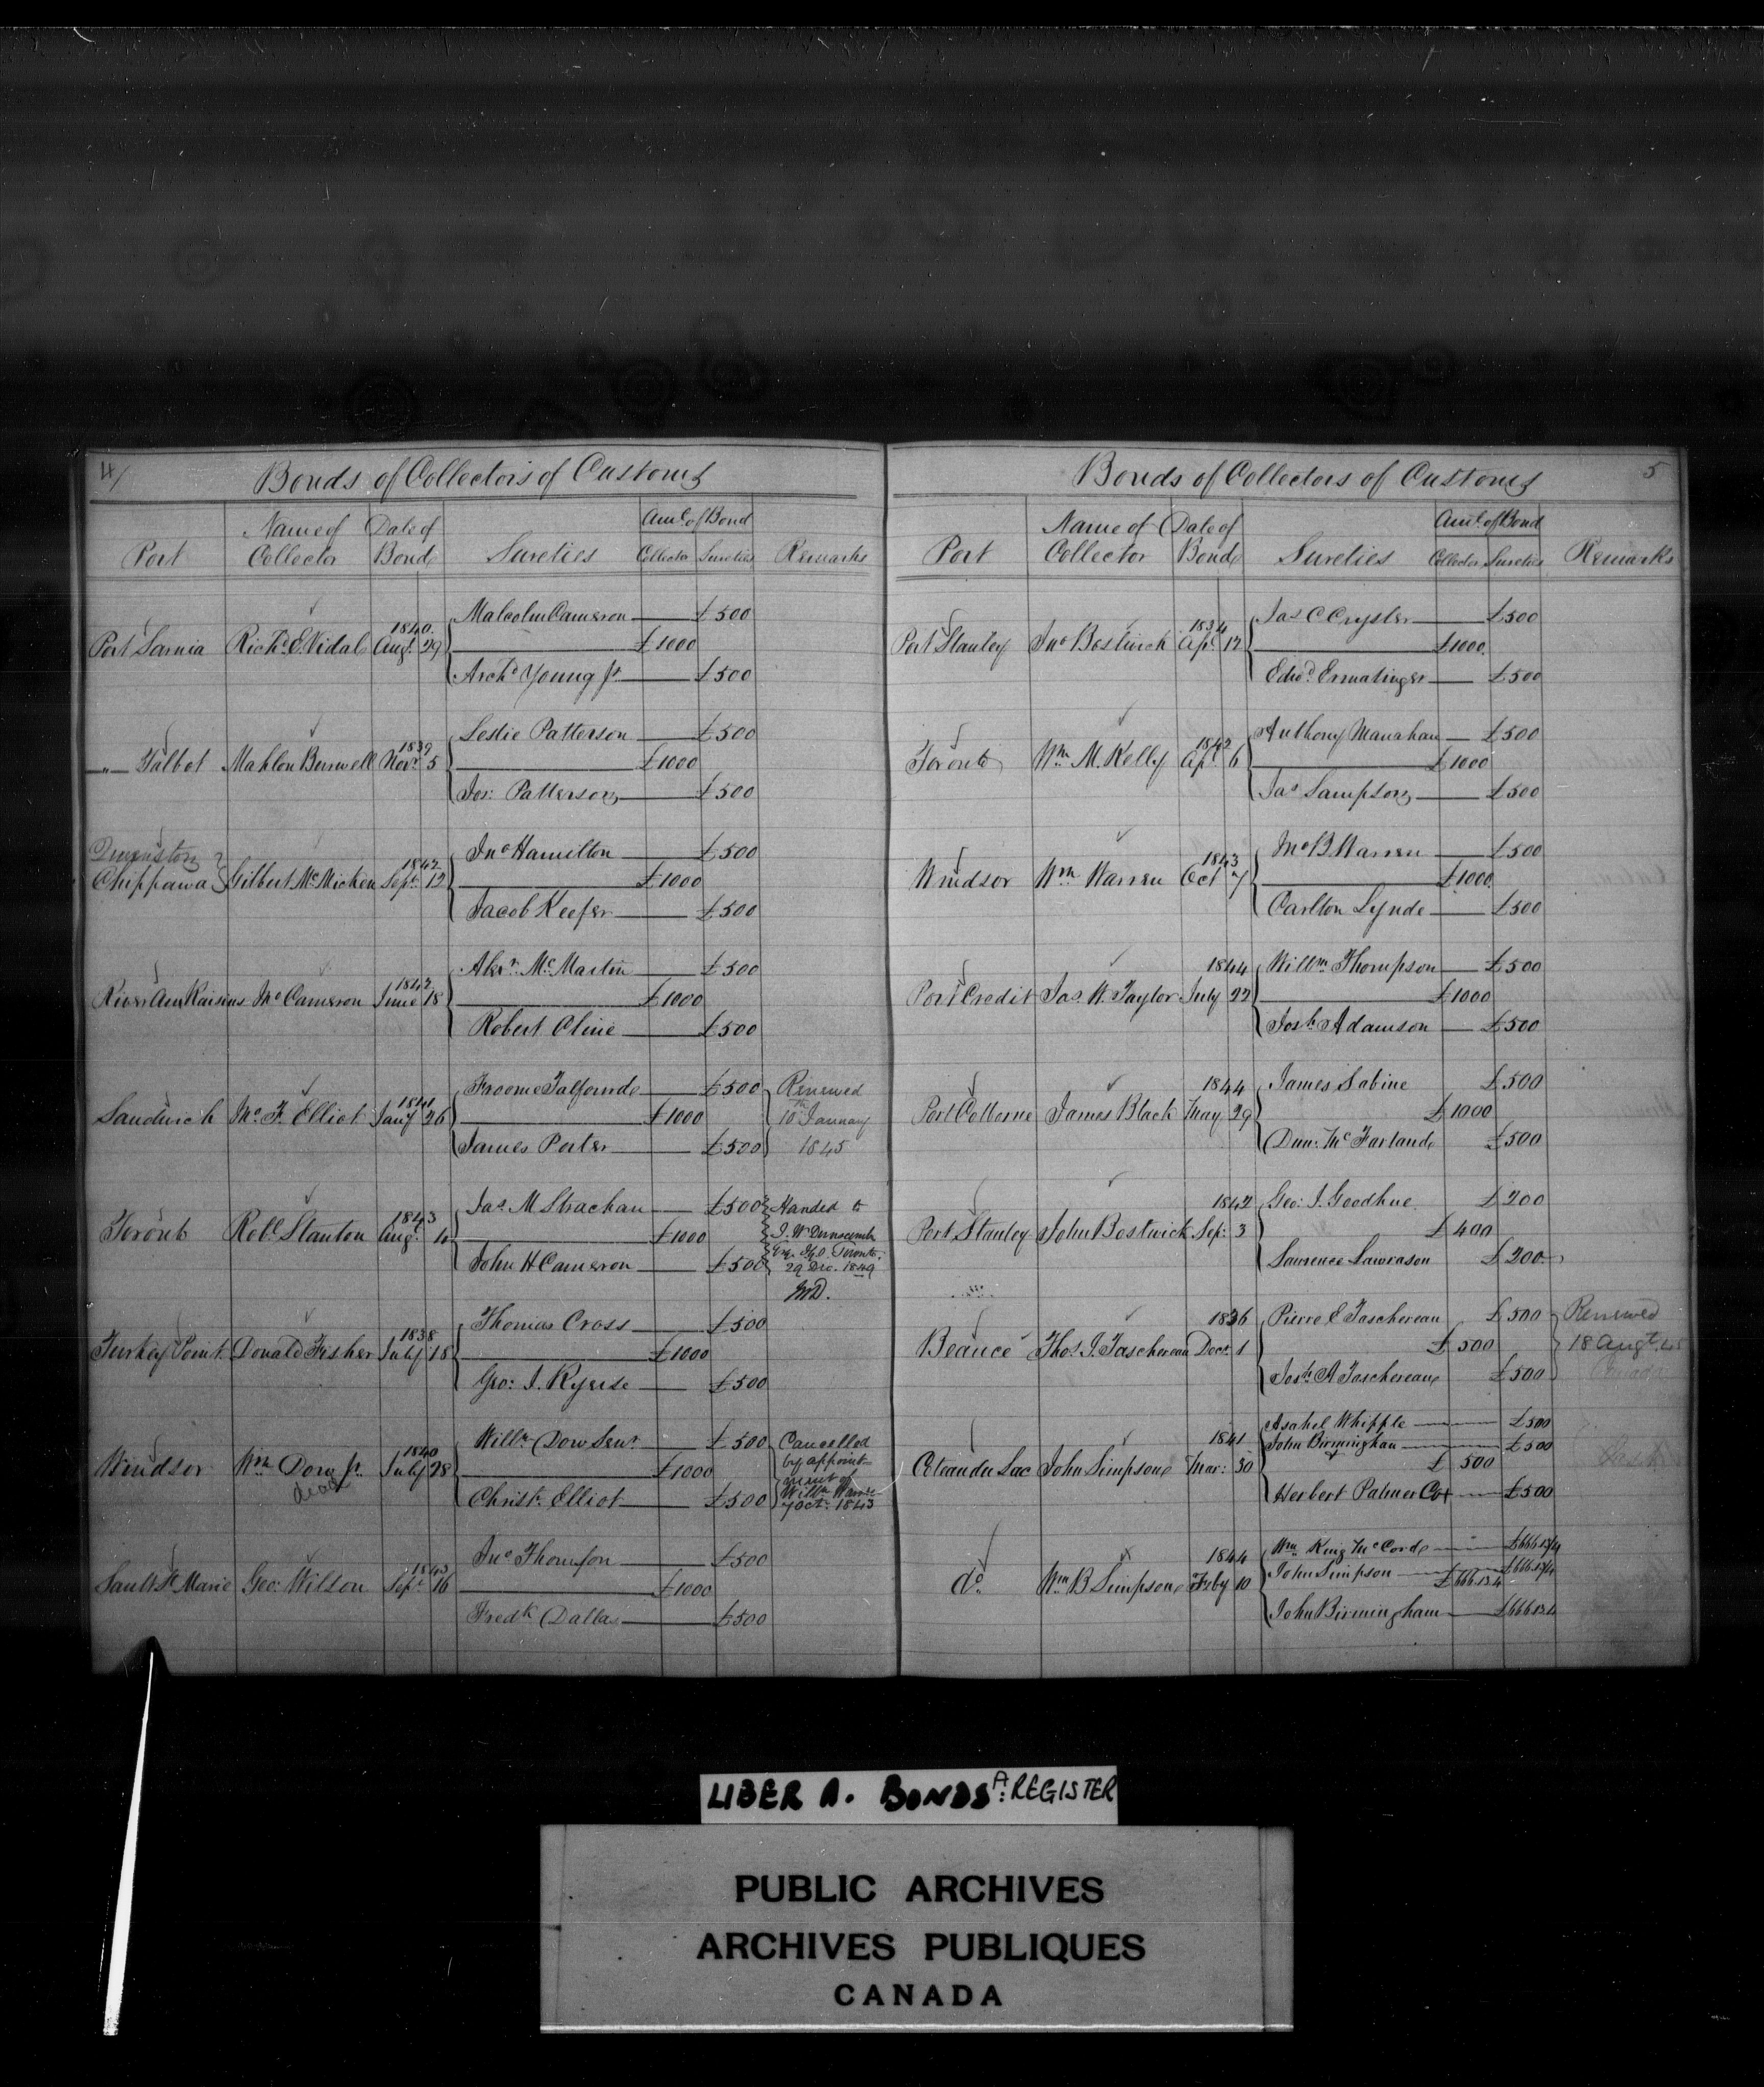 4/
Bonds of Collectors of Customs
Port Name of Collector Date of Bond Sureties Amt. of Bond Collector Sureties Remarks
Malcolm Cameron £500
Port Sarnia Richd. E. Vidal 1840. Augt. 29 £1000
Archd. Young Jr. £500
Leslie Patterson £500
" Talbot Mahlon Burwell 1839 Novr. 5 £1000
Jos: Patterson £500
Queenston
Jno Hamilton £500
Chippawa Gilbert McMicken 1842 Sept. 12 £1000
Jacob Keefer £500
Alexr. McMartin £500
River Aux Raisins Jno Cameron 1842 June 18 £1000
Robert Cline £500
Froome Talfourd £500 Renewed
Sandwich Jno. F. Elliot 1841 Jany 26 £1000 10th January
James Porter £500 1845
Jas. M Strachan £500 Handed to
Toronto Robt. Stanton 1843 Augt. 4 £1000 J. W. Dunscomb
Esq. Toronto
John H Cameron £500 29 Dec. 1849
Thomas Cross £500
Turkey Point Donald Fisher 1838 July 18 £1000
Geo: J. Ryerse £500
Willm Dow Senr £500 Cancelled
by appoint-
Windsor Wm Dow Jr. 1840 July 28 £1000 ment of
dead
Christr. Elliot £500 Willm Warren
7 Oct. 1843
Jno Thomson £500
Sault St. Marie Geo: Wilson 1843 Sept. 16 £1000
Fredk Dallas £500
5
Bonds of Collectors of Customs
Port Name of Collector Date of Bond Sureties Amt. of Bond Collector Sureties Remarks
Jas C Crysler £500
Port Stanley Jno Bostwick 1834 Apl. 12 £1000
Edwd. Ermatinger £500
Anthony Manahan £500
Toronto Wm M. Kelly 1842 Apl. 6 £1000
Jas Sampson £500
Jno B Warren £500
Windsor Wm Warren 1843 Oct 7 £1000
Carlton Lynde £500
Willm Thompson £500
Port Credit Jas. W. Taylor 1844 July 22 £1000
Josh. Adamson £500
James Sabine £500
Port Colborne James Black 1844 May 29 £1000
Dun: McFarland £500
Geo: J. Goodhue £200
Port Stanley John Bostwick 1842 Sep: 3 £400
Lawrence Lawrason £200
Pierre E Taschereau £500 Renewed
Beauce Thos. J. Taschereau 1836 Decr. 1 £500 18 Augt. 45
Josh. A Taschereau £500 Canada
Asahel Whipple £500
John Birmingham £500
Coteau du Lac John Simpson 1841 Mar: 30 £500
Herbert Palmer Cox £500
Wm King McCord £666.13/4
John Simpson £666.13/4
do. Wm B Simpson 1844 Feby 10 £666.13.4
John Birmingham £666.13.4
LIBER A. BONDS A. REGISTER
PUBLIC ARCHIVES
ARCHIVES PUBLIQUES
CANADA